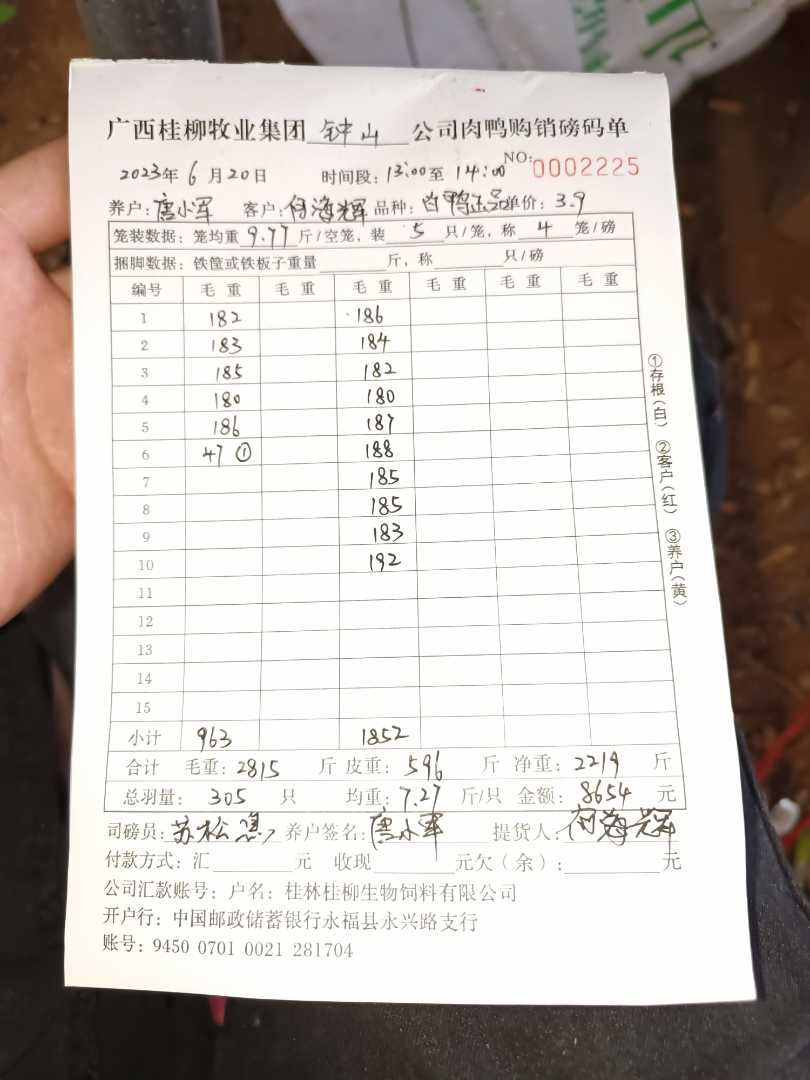 广西桂柳牧业集团 钟山 公司肉鸭购销磅码单
2023年6月20日 时间段:13:00至14:00 NO:0002225
养户:唐小军 客户:何海辉 品种:白鸭正品 单价:3.9
笼装数据:笼均重9.77斤/空笼,装5只/笼,称4笼/磅
捆脚数据:铁筐或铁板子重量 斤,称 只/磅
编号 毛重 毛重 毛重 毛重 毛重 毛重
1 182 186
2 183 184
3 185 182
4 180 180
5 186 187
6 47① 188
7 185
8 185
9 183
10 192
11
12
13
14
15
小计 963 1852
合计 毛重:2815 斤 皮重:596 斤 净重:2219 斤
总羽量:305 只 均重:7.27 斤/只 金额:8654 元
司磅员:苏松 养户签名:唐小军 提货人:何海辉
付款方式:汇 元 收现 元欠(余): 元
公司汇款账号:户名:桂林桂柳生物饲料有限公司
开户行:中国邮政储蓄银行永福县永兴路支行
账号:9450 0701 0021 281704
①存根(白) ②客户(红) ③养户(黄)